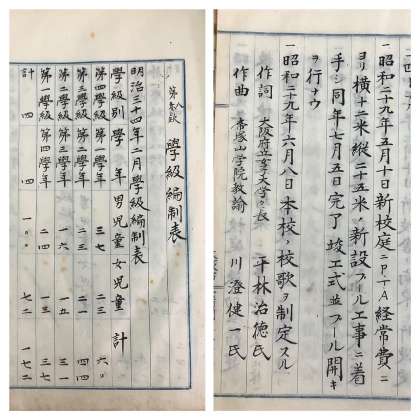 學級編制表
明治三十四年二月學級編制表
學級別 學年 男児童 女児童 計
第四學級 第一學年 三七 二三 六〇
第三學級 第二學年 二三 二一 四四
第二學級 第三學年 一六 一五 三一
第一學級 第四學年 二四 一三 三七
計 四 四 一〇〇 七二 一七二
一 昭和二十九年五月十日新校庭ニP.T.A経常費ニ
ヨリ横十二米縦二十五米ノ新設プール工事ニ着
手シ同年七月五日完了竣工式並プール開キ
ヲ行ナウ
一 昭和二十九年六月八日本校ノ校歌ヲ制定スル
作詞 大阪府立女子大学々長 平林治徳氏
作曲 帝塚山学院教諭 川澄健一氏